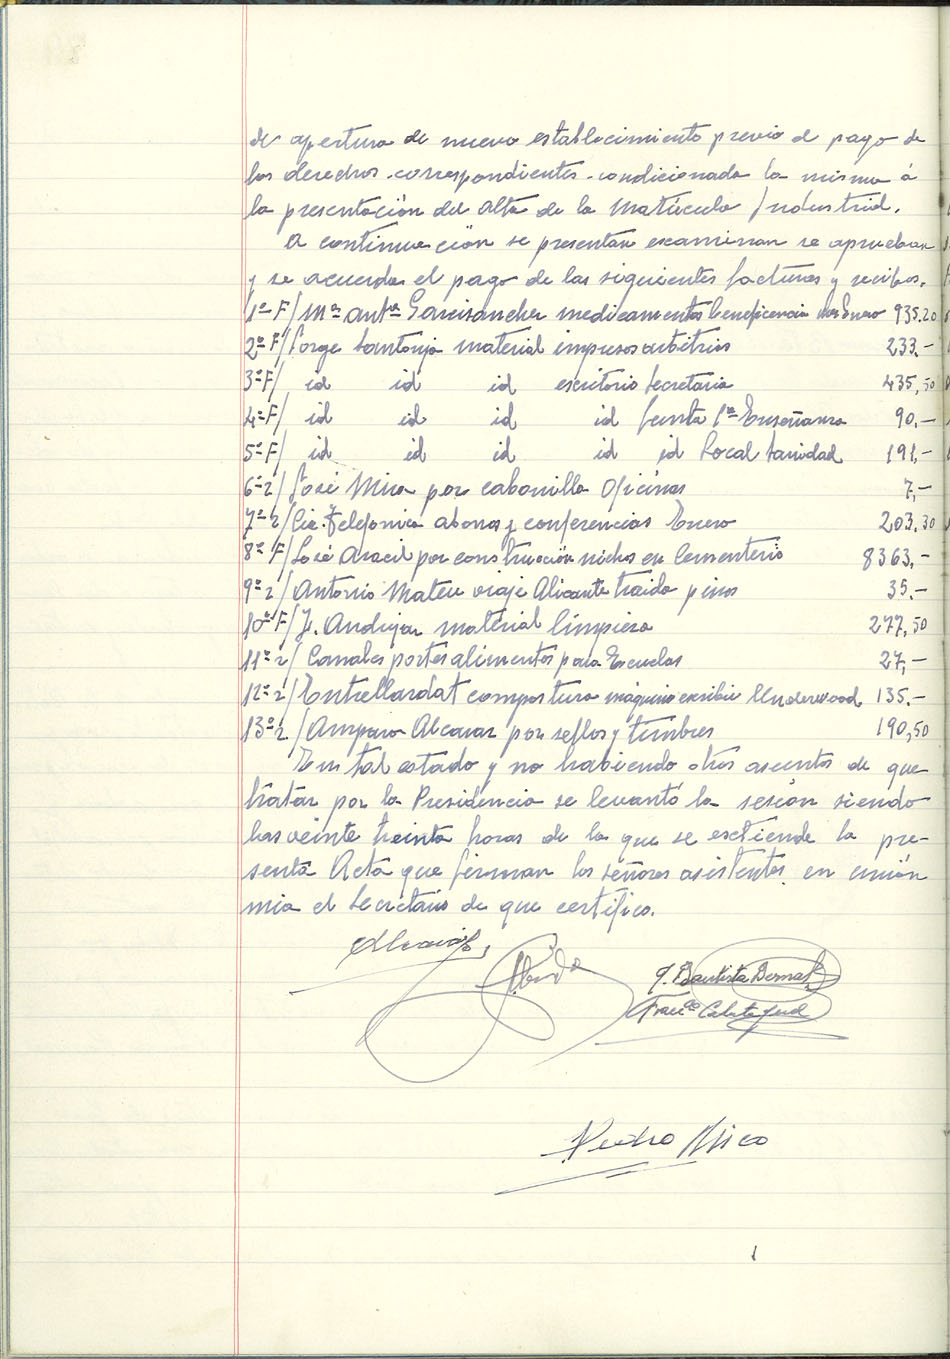 de apertura de nuevo establecimiento previo el pago de
los derechos correspondientes condicionada la misma á
la presentación del Alta de la Matrícula Industrial.
A continuación se presentan examinan se aprueban
y se acuerda el pago de las siguientes facturas y recibos.
1º F/ Mª Antª Garcisanchez medicamentos beneficencia mes Enero 935.20
2º F/ Jorge Santonja material impresos arbitrios 233.-
3º F/ id id id escritorio Secretaria 435,50
4º F/ id id id id Junta 1ª Enseñanza 90.-
5º F/ id id id id id Local Sanidad 191,-
6º r/ José Mira por cabonilla Oficinas 7,-
7º r/ Cia. Telefonica abonos y conferencias Enero 203.30
8º F/ José Aracil por construcción nichos en Cementerio 8363,-
9º r/ Antonio Mateu viaje Alicante traida pinos 35.-
10º F/ J. Andujar material limpieza 277,50
11º r/ Canales portes alimentos para Escuelas 27,-
12º r/ Entrellardat compostura máquina escribir Underwood 135.-
13º r/ Amparo Alcaraz por sellos y timbres 190,50
En tal estado y no habiendo otros asuntos de que
tratar por la Presidencia se levantó la sesión siendo
las veinte treinta horas de la que se extiende la pre-
senta Acta que firman los señores asistentes en unión
mia el Secretario de que certifico.
J. Bautista Bernal
Francº Calatayud
Pedro Mico